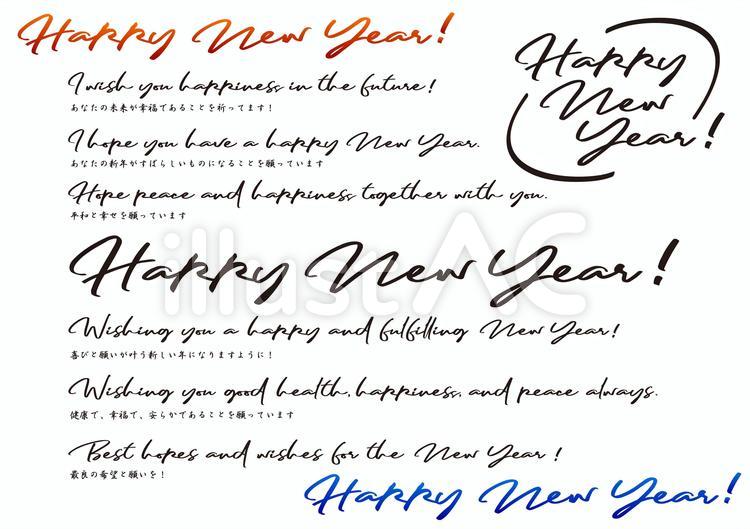 Happy New Year!
Happy
New
Year!
I wish you happiness in the future!
あなたの未来が幸福であることを祈ってます！
I hope you have a happy New Year.
あなたの新年がすばらしいものになることを願っています
Hope peace and happiness together with you.
平和と幸せを願っています
Happy New Year!
illustAC
Wishing you a happy and fulfilling New Year!
喜びと願いが叶う新しい年になりますように！
Wishing you good health, happiness, and peace always.
健康で、幸福で、安らかであることを願っています
Best hopes and wishes for the New Year!
最良の希望と願いを！
Happy New Year!